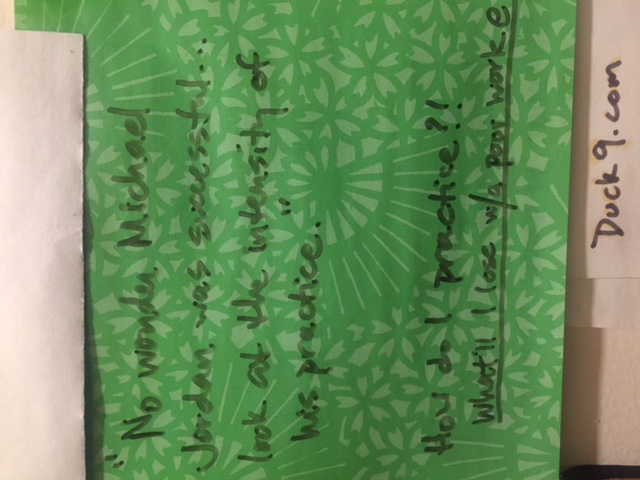 "No wonder Michael
Jordan was successful...
look at the intensity of
his practice."
How do I practice?!
What'll I lose w/a poor work e
Duck9.com